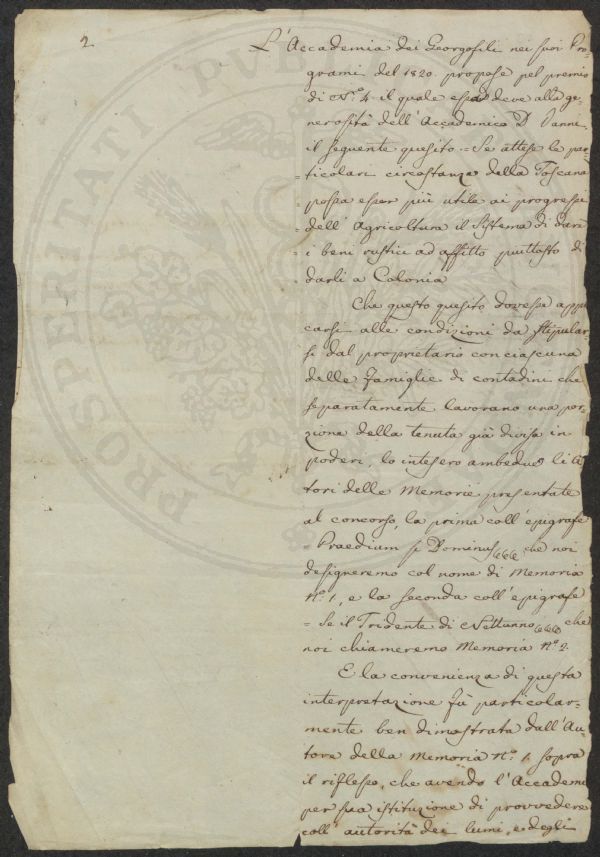 2
L'Accademia dei Georgofili nei suoi Pro-
grami del 1820. propose pel premio
di N.º 4 il quale essa deve alla ge-
nerosità dell'Accademico D. Vanni
il seguente quesito = Se attese le par-
= ticolari circostanze della Toscana
= possa esser più utile ai progressi
= dell'Agricoltura il Sistema di dare
= i beni rustici ad affitto piuttosto di
= darli a Colonia
Che questo quesito dovesse appli
carsi alle condizioni da stipular-
si dal proprietario con ciascuna
delle famiglie di contadini che
separatamente lavorano una por-
zione della tenuta già divisa in
poderi, lo intesero ambedue li Au
tori delle Memorie presentate
al concorso, la prima coll'epigrafe
= Praedium si Dominus che noi
designeremo col nome di Memoria
N.º 1, e la seconda coll'epigrafe
= Se il Tridente di Nettunno che
noi chiameremo Memoria N.º 2.
E la convenienza di questa
interpretazione fù particolar-
mente ben dimostrata dall'Au-
tore della Memoria N.º 1. sopra
il riflesso, che avendo l'Accademi
per sua istituzione di provvedere
coll'autorità dei lumi, e degli
PROSPERITATI PUBLI